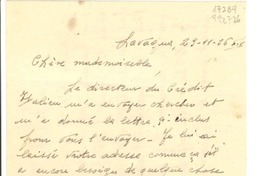 Lavagna, 29-11-26
Chère mademoiselle,
Le directeur du Crédit
Italien m'a envoyer chercher et
m'a donné la lettre, ci inclus
pour vous l'envoyer. Je lui ai
laissé votre adresse comme ça s'il
a encore besoin de quelque chose